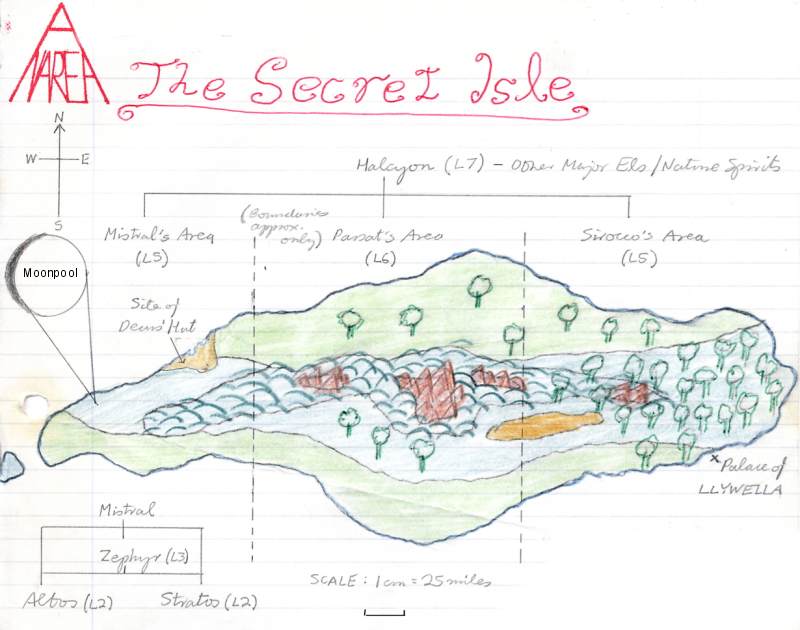 ANAREA
The Secret Isle
N
W E
S
Halcyon (L7) - Other Major Els/Native Spirits
(Boundaries
approx.
only)
Mistral's Area
(L5)
Passat's Area
(L6)
Sirocco's Area
(L5)
Moonpool
Site of
Deus' Hut
x Palace of
LLYWELLA
Mistral
Zephyr (L3)
Albos (L2) Stratos (L2)
SCALE : 1cm = 25 miles